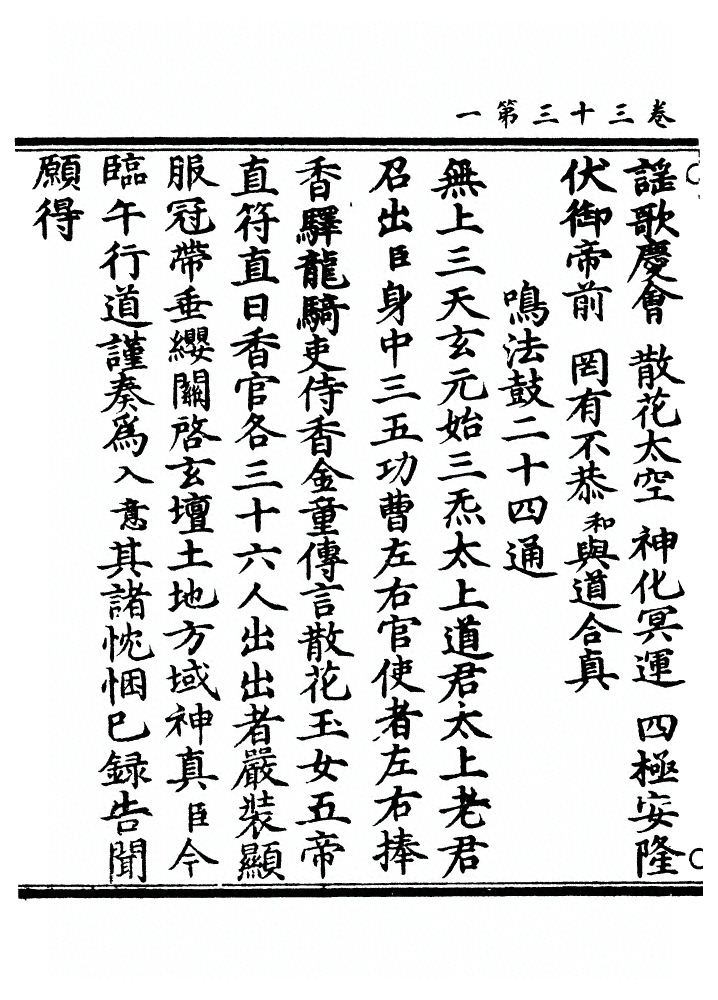 卷三十三第一
謡歌慶會　散花太空　神化冥運　四極安隆
伏御帝前　罔有不恭和與道合真
鳴法鼓二十四通
無上三天玄元始三炁太上道君太上老君
召出臣身中三五功曹左右官使者左右捧
香驛龍騎吏侍香金童傳言散花玉女五帝
直符直日香官各三十六人出出者嚴裝顯
服冠帶垂纓關啓玄壇土地方域神真臣今
臨午行道謹奏爲入意其諸忱悃已録告聞
願得